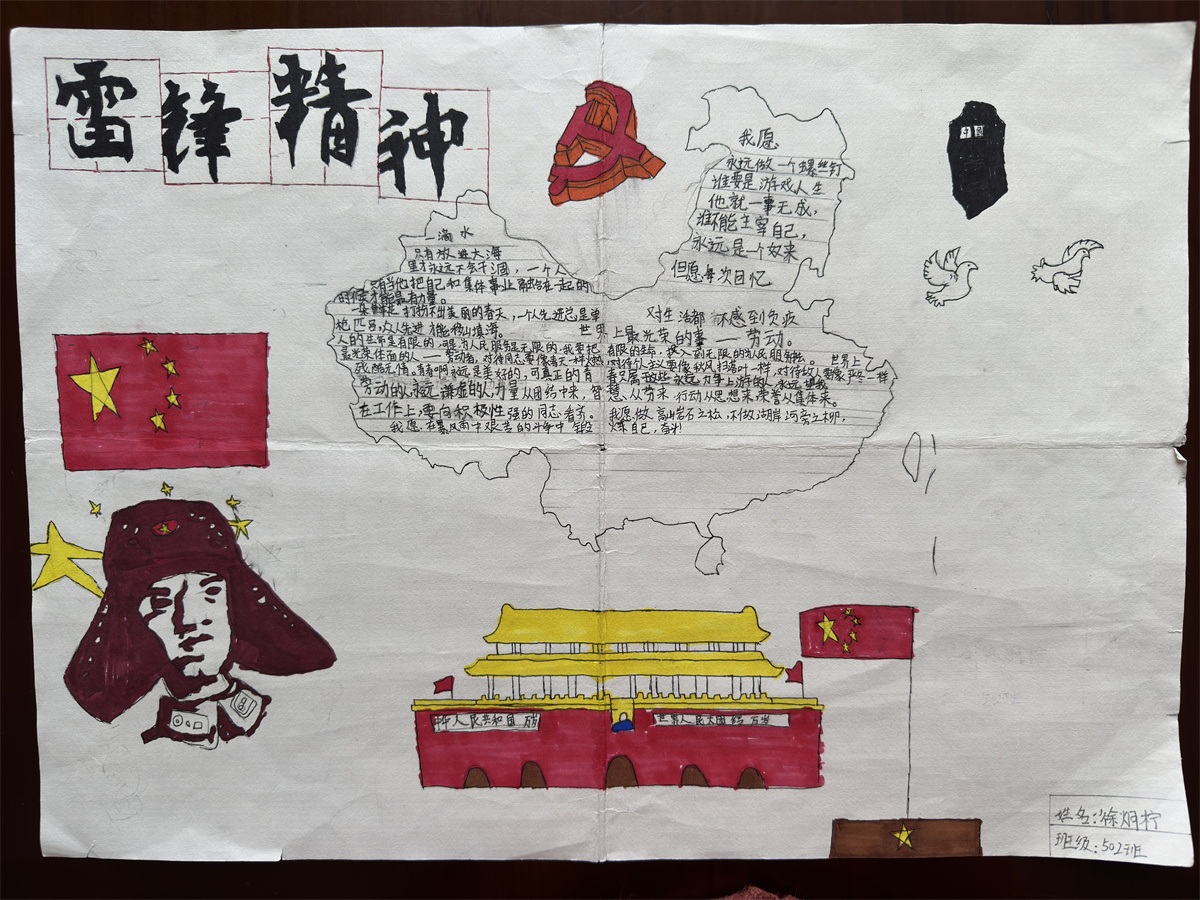 雷锋精神
我愿
永远做一个螺丝钉
谁要是游戏人生
他就一事无成，
谁不能主宰自己，
永远是一个奴来
但愿每次回忆
对生活都不感到负疚
一滴水
只有放进大海
里才永远不会干涸，一个人
只有当他把自己和集体事业融合在一起的
时候才能最有力量。
打扮不出美丽的春天，一个人先进总是单
枪匹马，众人先进才能移山填海。
世界上最光荣的事——劳动。
人的生命是有限的，可是为人民服务是无限的，我要把有限的生命，投入到无限的为人民服务之中。世界上
最光荣体面的人——劳动者，对待同志要像春天一样火热，对待个人主义要像秋风扫落叶一样，对待敌人要像严冬一样
残酷无情。青春啊永远是美好的，可真正的青春只属于这些永远力争上游的人，永远
劳动的人，永远谦虚的人，力量从团结中来，智慧从劳来，行动从思想来，荣誉从集体来。
在工作上，要向积极性强的同志看齐。我愿做高山岩石之松，不做湖岸河旁之柳，
我愿在暴风雨中艰苦的斗争中锻炼自己，奋斗！
人民共和国
世界人民大团结万岁
姓名：徐炯柠
班级：502班